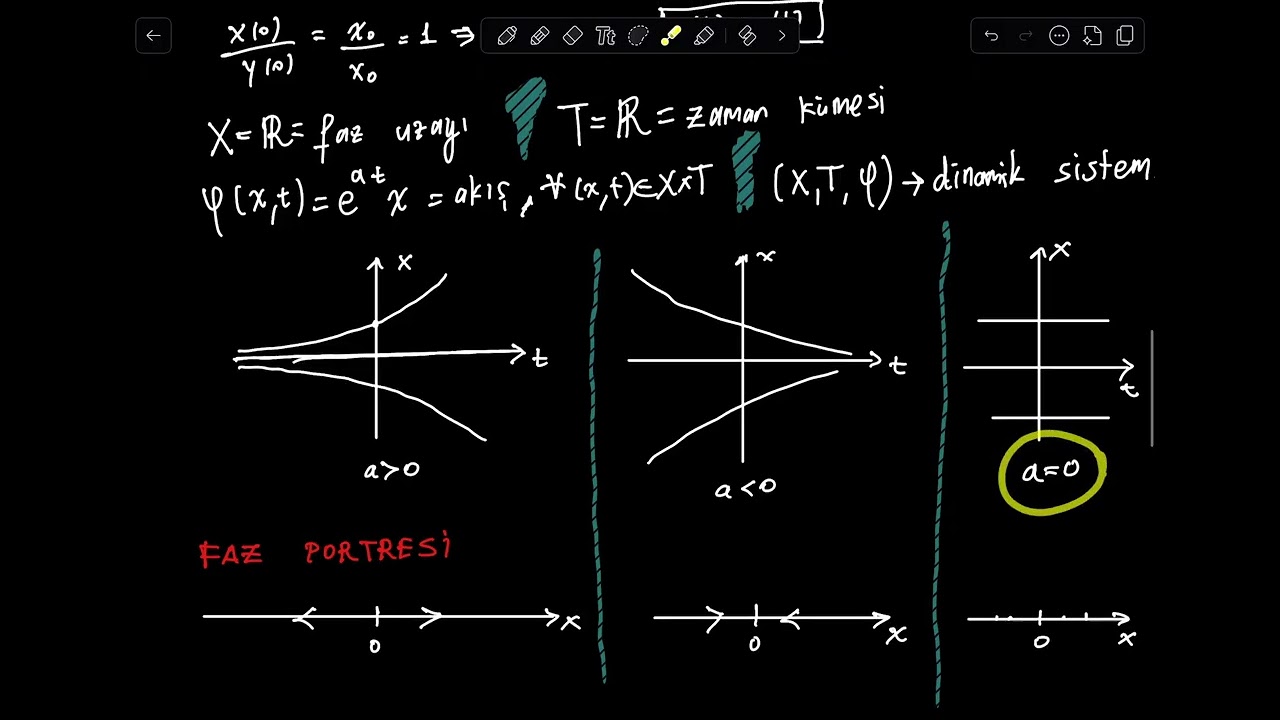 x(0)/y(0) = x₀/x₀ = 1 ⇒
Tt
X = ℝ = faz uzayı T = ℝ = zaman kümesi
φ(x,t) = e^{at} x = akış, ∀(x,t)∈X×T (X,T,φ) → dinamik sistem
x x x
t t t
a>0 a<0 a=0
FAZ PORTRESİ
0 x 0 x 0 x